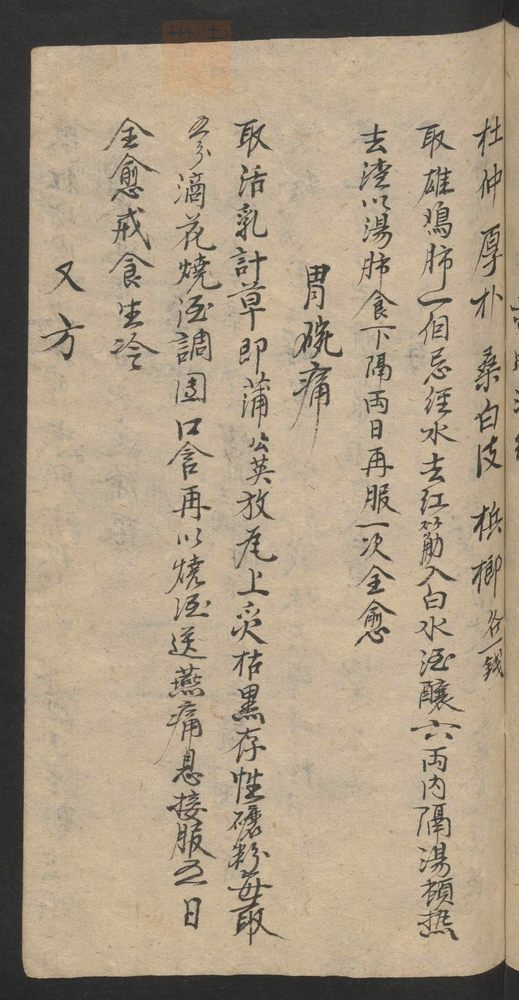 杜仲 厚朴 桑白皮 梹榔 各一錢
取雄鳩肺一個忌經水去紅筋入白水酒釀六両内隔湯頓熱
去渣以湯肺食下隔両日再服一次全愈
胃脘痛
取活乳計草即蒲公英放瓦上炙枯黒存性磭粉每取
五分滴花燒酒調圓口含再以燒酒送嚥痛息接服五日
全愈戒食生冷
又方